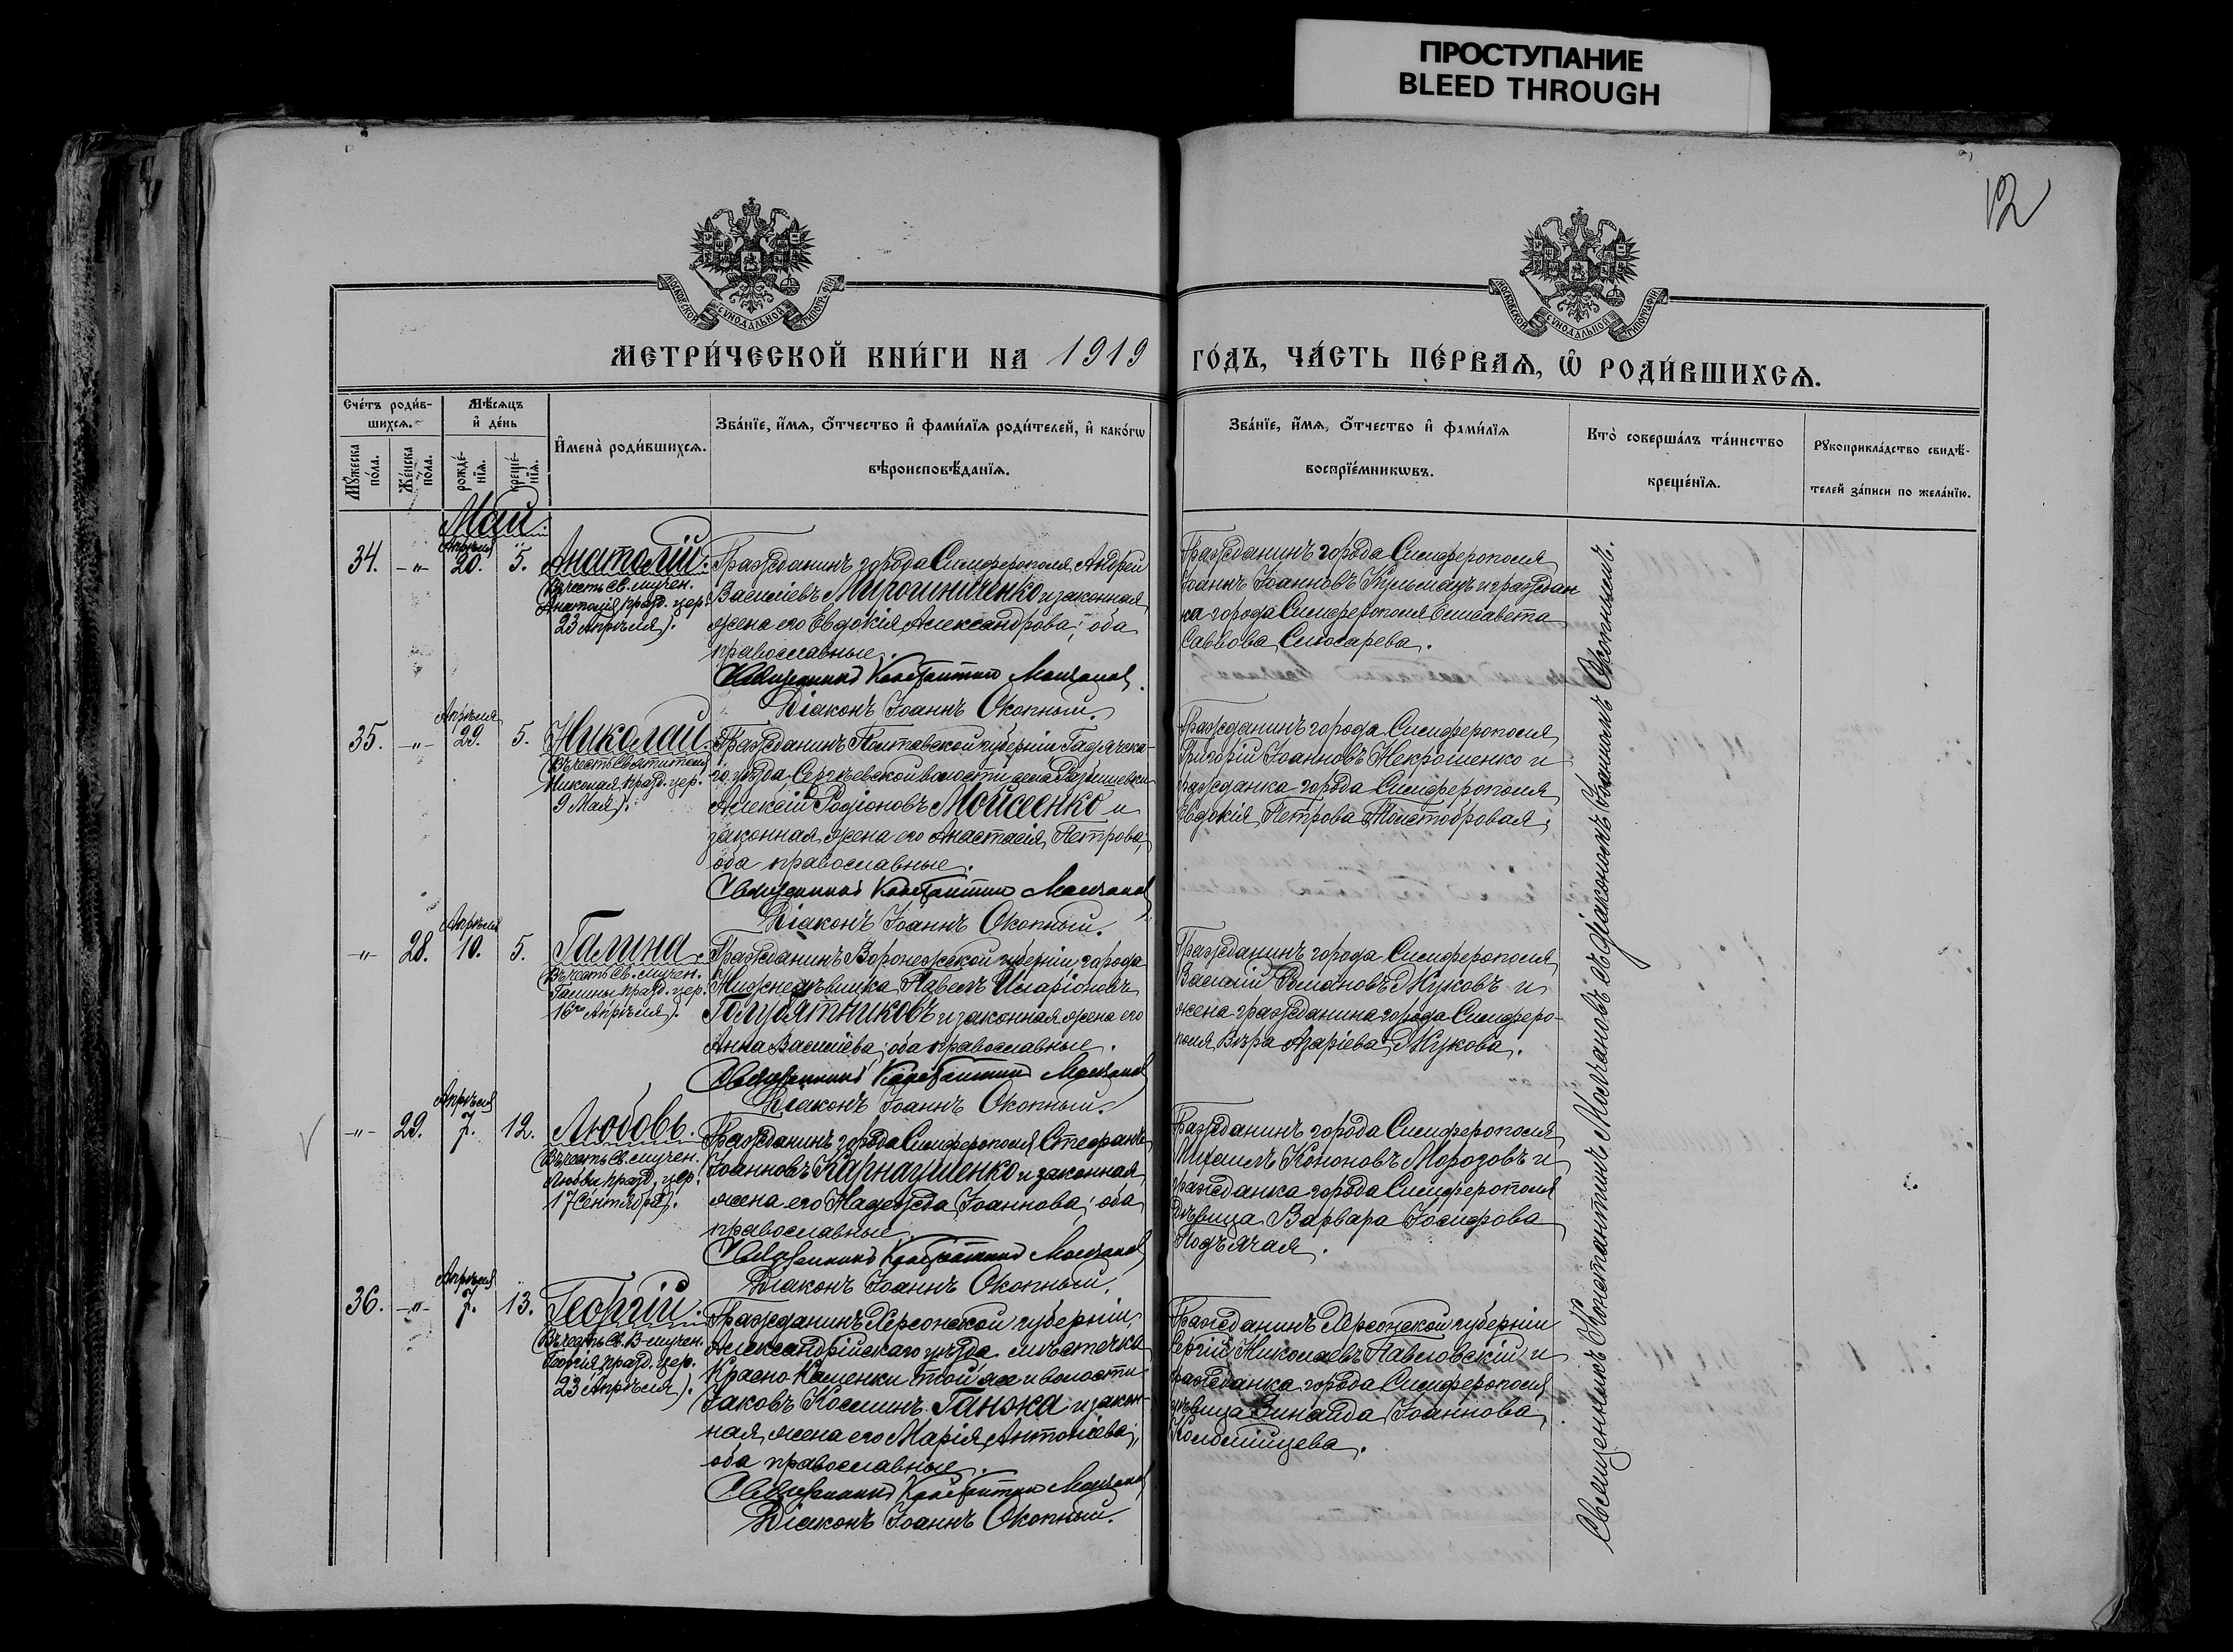 ПРОСТУПАНИЕ
BLEED THROUGH
12
МОСКОВСКОЙ СѴНОДАЛЬНОЙ ТИПОГРАФІИ
МОСКОВСКОЙ СѴНОДАЛЬНОЙ ТИПОГРАФІИ
МЕТРИ́ЧЕСКОЙ КНИ́ГИ НА 1919 ГО́ДЪ, ЧА́СТЬ ПЕ́РВАѦ, Ѡ҆ РОДИ́ВШИХСѦ.
Сче́тъ роди́в-
шихсѧ.
Мꙋ́жеска по́ла.
Же́нска по́ла.
Мѣ́сѧцъ
и҆ де́нь
рожде́-нїѧ.
креще́-нїѧ.
И҆мена̀ роди́вшихсѧ.
Зва́нїе, и҆́мѧ, ѻ҆́тчество и҆ фами́лїѧ роди́телей, и҆ како́гѡ
вѣроисповѣ́данїѧ.
Зва́нїе, и҆́мѧ, ѻ҆́тчество и҆ фами́лїѧ
воспрїе́мникѡвъ.
Кто̀ соверша́лъ та́инство
креще́нїѧ.
Рꙋкоприкла́дство свидѣ́-
телей за́писи по жела́нїю.
Май.
34. -„- Апрѣля 20. 5. Анатолій.
(Въ честь Св. мучен.
Анатолія празд. цер.
23 Апрѣля).
Гражданинъ города Симферополя Андрей
Василіевъ Мирошниченко и законная
жена его Евдокія Александрова; оба
православные.
Священникъ Константинъ Молчановъ
Діаконъ Іоаннъ Окопный.
Гражданинъ города Симферополя
Іоаннъ Іоанновъ Кульманъ и граждан
ка города Симферополя Елисавета
Саввова Слюсарева.
35. -„- Апрѣля 29. 5. Николай.
(Въ честь Святителя
Николая празд. цер.
9 Мая).
Гражданинъ Полтавской губерніи Гадячска-
го уѣзда Сергѣевской волости села Рабишевки
Алексій Родіоновъ Мойсеенко и
законная жена его Анастасія Петрова;
оба православные.
Священникъ Константинъ Молчановъ
Діаконъ Іоаннъ Окопный.
Гражданинъ города Симферополя
Григорій Іоанновъ Некрошенко и
гражданка города Симферополя
Евдокія Петрова Толстобровая.
-„- 28. Апрѣля 10. 5. Галина.
(Въ честь Св. мучен.
Галины празд. цер.
16го Апрѣля).
Гражданинъ Воронежской губерніи города
Нижнедѣвицка Павелъ Иларіоновъ
Голубятниковъ и законная жена его
Анна Василіева; оба православные.
Священникъ Константинъ Молчановъ
Діаконъ Іоаннъ Окопный.
Гражданинъ города Симферополя
Василій Романовъ Жуковъ и
жена гражданина города Симферо-
поля Вѣра Азаріева Жукова.
-„- 29. Апрѣля 7. 12. Любовь.
(Въ честь Св. мучен.
Любви празд. цер.
17 Сентября).
Гражданинъ города Симферополя Стефанъ
Іоанновъ Карнаушенко и законная
жена его Надежда Іоаннова; оба
православные.
Священникъ Константинъ Молчановъ
Діаконъ Іоаннъ Окопный.
Гражданинъ города Симферополя
Михаилъ Кононовъ Морозовъ и
гражданка города Симферополя
дѣвица Варвара Іосифова
Подъячая.
36. -„- Апрѣля 7. 13. Георгій.
(Въ честь Св. В-мучен.
Георгія празд. цер.
23 Апрѣля).
Гражданинъ Херсонской губерніи,
Александрійскаго уѣзда мѣстечка
Красно-Каменки той же и волости
Іаковъ Космин. Ганжа и закон-
ная жена его Марія Антоніева;
оба православные.
Священникъ Константинъ Молчановъ
Діаконъ Іоаннъ Окопный.
Гражданинъ Херсонской губерніи
Сергій Николаевъ Павловскій и
гражданка города Симферополя
дѣвица Зинаида Іоаннова
Коломійцева.
Священникъ Константинъ Молчановъ съ діакономъ Іоанномъ Окопнымъ.